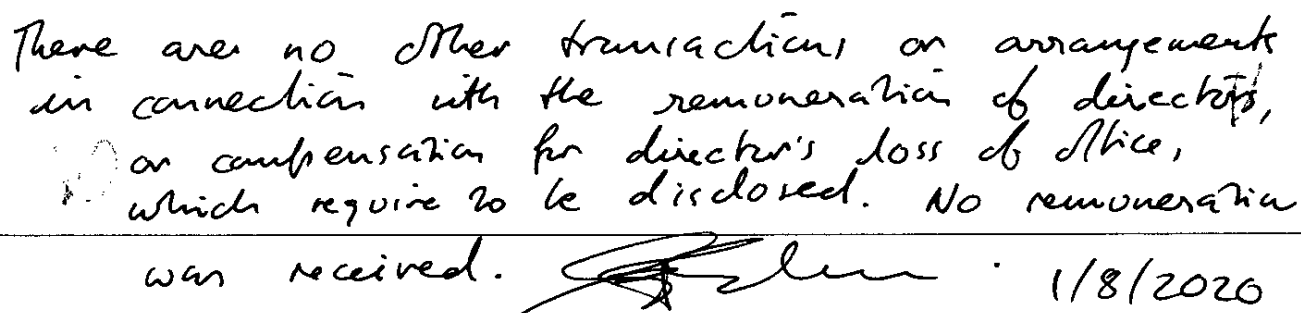 There are no other transactions or arrangements
in connection with the remuneration of directors,
or compensation for director's loss of office,
which require to be disclosed. No remuneration
was received. 1/8/2020